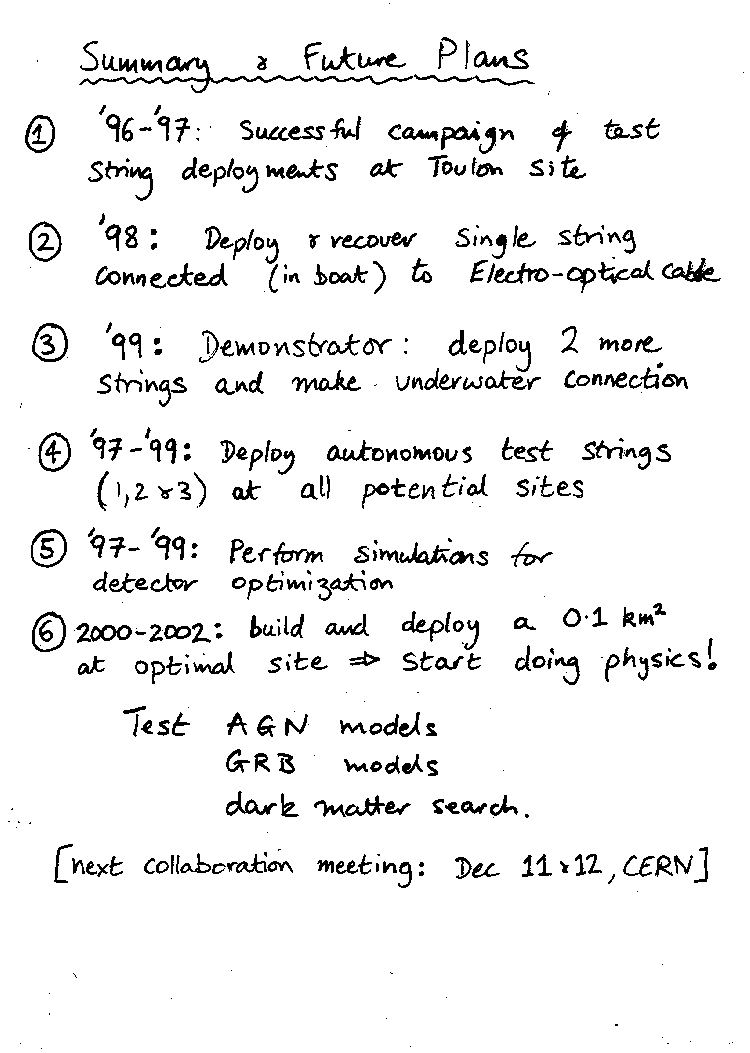 Summary & Future Plans
① '96-'97: Successful campaign of test
string deployments at Toulon site
② '98: Deploy & recover single string
connected (in boat) to Electro-optical cable
③ '99: Demonstrator: deploy 2 more
strings and make underwater connection
④ '97-'99: Deploy autonomous test strings
(1,2 & 3) at all potential sites
⑤ '97-'99: Perform simulations for
detector optimization
⑥ 2000-2002: build and deploy a 0.1 km²
at optimal site ⇒ start doing physics!
Test AGN models
GRB models
dark matter search.
[next collaboration meeting: Dec 11 & 12, CERN]